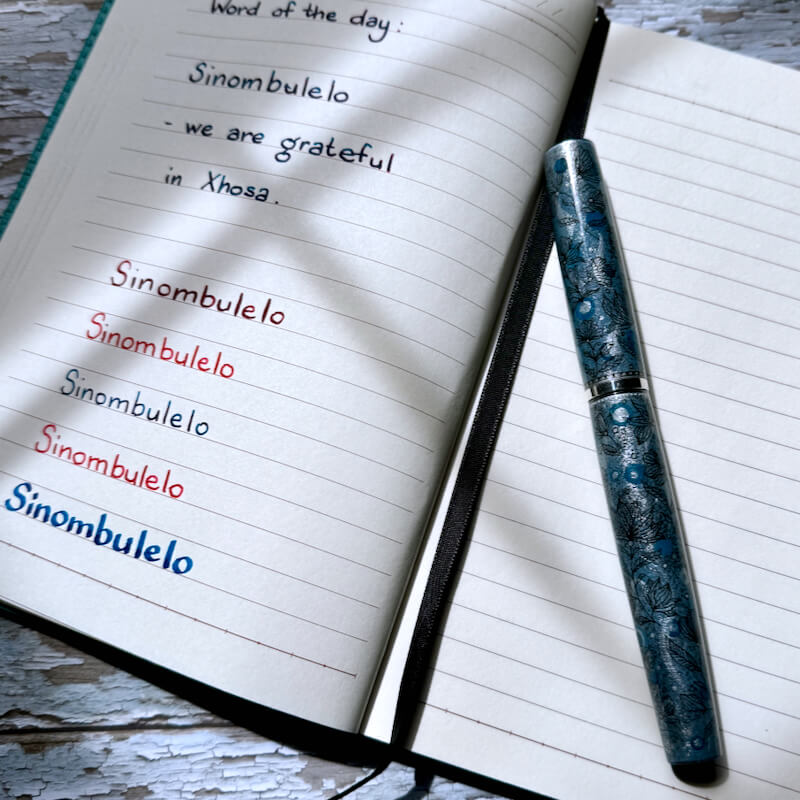 Word of the day:
Sinombulelo
- we are grateful
in Xhosa.
Sinombulelo
Sinombulelo
Sinombulelo
Sinombulelo
Sinombulelo